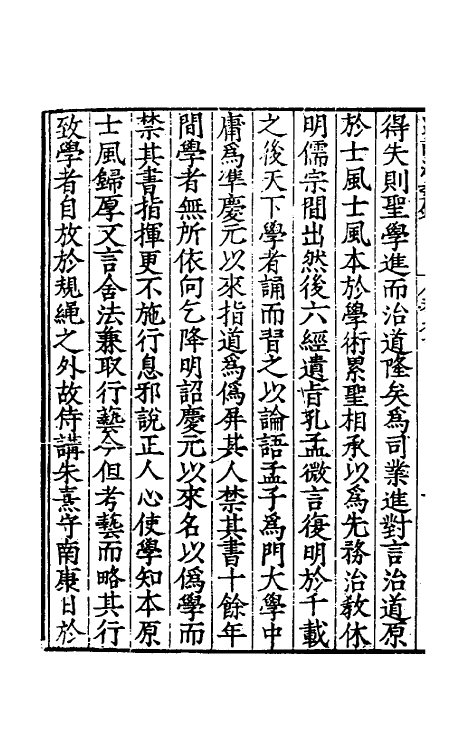 得失則聖學進而治道隆矣爲司業進對言治道原
於士風士風本於學術累聖相承以爲先務治敎休
明儒宗間出然後六經遺旨孔孟微言復明於千載
之後天下學者誦而習之以論語孟子爲門大學中
庸爲凖慶元以來指道爲僞屛其人禁其書十餘年
間學者無所依向乞降明詔慶元以來名以僞學而
禁其書指揮更不施行息邪說正人心使學知本原
士風歸厚又言舍法兼取行藝今但考藝而略其行
致學者自放於規繩之外故侍講朱熹守南康日於